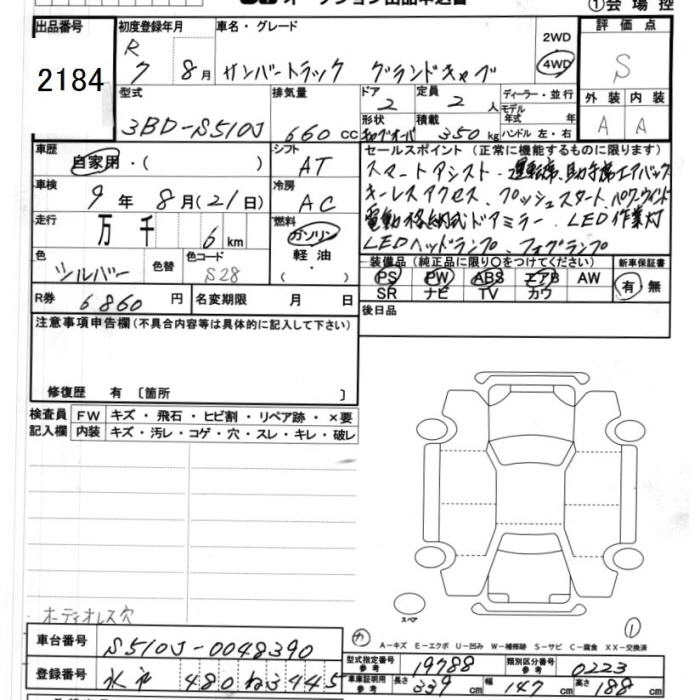 オークション出品申込書
①会場控
出品番号 2184
初度登録年月 R 7 8月
車名・グレード サンバートラック グランドキャブ
2WD 4WD
評価点 S
外装 A 内装 A
型式 3BD-S510J
排気量 660 CC
ドア 2
形状
定員 2 人
積載 350 kg
ディーラー・並行
モデル年式 年式
ハンドル 左・右
車歴 自家用・( )
シフト AT
車検 9年 8月(21日)
冷房 AC
走行 万 千 6 km
燃料 ガソリン 軽油 ・( )
色 シルバー 色替 色コード S28
R券 6860 円 名変期限 月 日
セールスポイント(正常に機能するものに限ります)
スマートアシスト・運転席、助手席エアバック
キーレスアクセス、プッシュスタート、パワーウインド
電動格納式ドアミラー、LED作業灯
LEDヘッドランプ、フォグランプ
装備品(純正品に限り○をつけてください)
PS PW ABS エアB AW
SR ナビ TV カワ
新車保証書 有・無
後日品
注意事項申告欄(不具合内容等は具体的に記入して下さい)
修復歴 有 〔箇所 〕
検査員記入欄
FW キズ・飛石・ヒビ割・リペア跡・×要
内装 キズ・汚レ・コゲ・穴・スレ・キレ・破レ
オーディオレス穴
スペア
①
A-キズ E-エクボ U-凹み W-補修跡 S-サビ C-腐食 XX-交換済
車台番号 S510J-0048390
登録番号 水戸 480 ね 3445
型式指定番号 参考 19788
類別区分番号 参考 0223
車庫証明用 参考 長さ 339 cm 幅 147 cm 高さ 188 cm